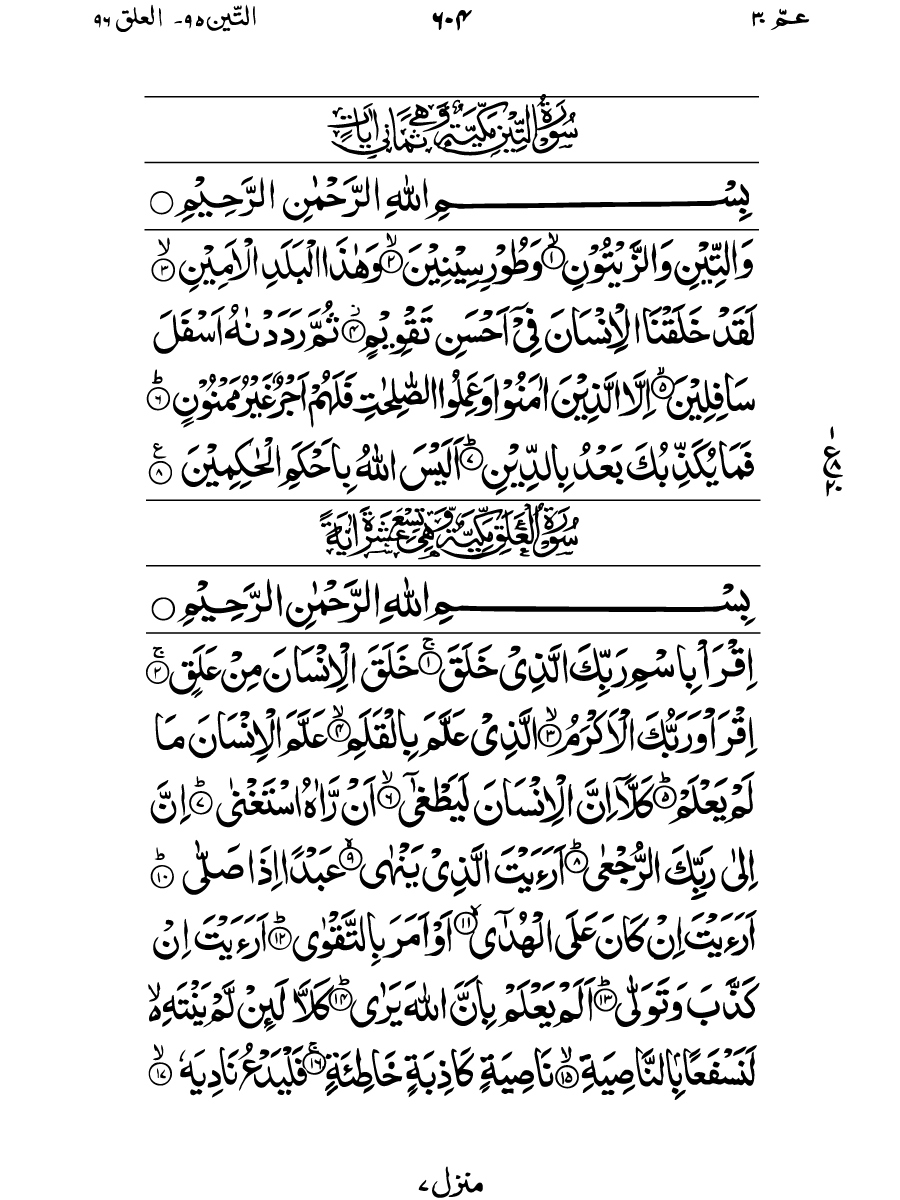 عمّ ٣٠ ٦٠٤ التّين ٩٥۔ العلق ٩٦
سُوْرَةُ التِّيْنِ مَكِّيَّةٌ وَّهِيَ ثَمَانِيْ اٰيَاتٍ
بِسْمِ اللهِ الرَّحْمٰنِ الرَّحِيْمِ ○
وَالتِّيْنِ وَالزَّيْتُوْنِ ۙ﴿١﴾ وَطُوْرِ سِيْنِيْنَ ۙ﴿٢﴾ وَهٰذَا الْبَلَدِ الْاَمِيْنِ ۙ﴿٣﴾
لَقَدْ خَلَقْنَا الْاِنْسَانَ فِيْۤ اَحْسَنِ تَقْوِيْمٍ ؗ﴿۴﴾ ثُمَّ رَدَدْنٰهُ اَسْفَلَ
سَافِلِيْنَ ۙ﴿۵﴾ اِلَّا الَّذِيْنَ اٰمَنُوْا وَعَمِلُوا الصّٰلِحٰتِ فَلَهُمْ اَجْرٌ غَيْرُ مَمْنُوْنٍ ؕ﴿٦﴾
فَمَا يُكَذِّبُكَ بَعْدُ بِالدِّيْنِ ؕ﴿٧﴾ اَلَيْسَ اللهُ بِاَحْكَمِ الْحٰكِمِيْنَ ﴿٨﴾ ع
١ ع ٨ ٢٠
سُوْرَةُ الْعَلَقِ مَكِّيَّةٌ وَّهِيَ تِسْعَ عَشْرَةَ اٰيَةً
بِسْمِ اللهِ الرَّحْمٰنِ الرَّحِيْمِ ○
اِقْرَاْ بِاسْمِ رَبِّكَ الَّذِيْ خَلَقَ ۚ﴿١﴾ خَلَقَ الْاِنْسَانَ مِنْ عَلَقٍ ۚ﴿٢﴾
اِقْرَاْ وَرَبُّكَ الْاَكْرَمُ ۙ﴿٣﴾ الَّذِيْ عَلَّمَ بِالْقَلَمِ ۙ﴿۴﴾ عَلَّمَ الْاِنْسَانَ مَا
لَمْ يَعْلَمْ ؕ﴿۵﴾ كَلَّاۤ اِنَّ الْاِنْسَانَ لَيَطْغٰۤى ۙ﴿٦﴾ اَنْ رَّاٰهُ اسْتَغْنٰى ؕ﴿٧﴾ اِنَّ
اِلٰى رَبِّكَ الرُّجْعٰى ؕ﴿٨﴾ اَرَءَيْتَ الَّذِيْ يَنْهٰى ۙ﴿٩﴾ عَبْدًا اِذَا صَلّٰى ؕ﴿١٠﴾
اَرَءَيْتَ اِنْ كَانَ عَلَى الْهُدٰۤى ۙ﴿١١﴾ اَوْ اَمَرَ بِالتَّقْوٰى ؕ﴿١٢﴾ اَرَءَيْتَ اِنْ
كَذَّبَ وَتَوَلّٰى ؕ﴿١٣﴾ اَلَمْ يَعْلَمْ بِاَنَّ اللهَ يَرٰى ؕ﴿١۴﴾ كَلَّا لَىِٕنْ لَّمْ يَنْتَهِ ۙ
لَنَسْفَعًا بِالنَّاصِيَةِ ۙ﴿١۵﴾ نَاصِيَةٍ كَاذِبَةٍ خَاطِئَةٍ ۚ﴿١٦﴾ فَلْيَدْعُ نَادِيَهٗ ۙ﴿١٧﴾
منزل ٧